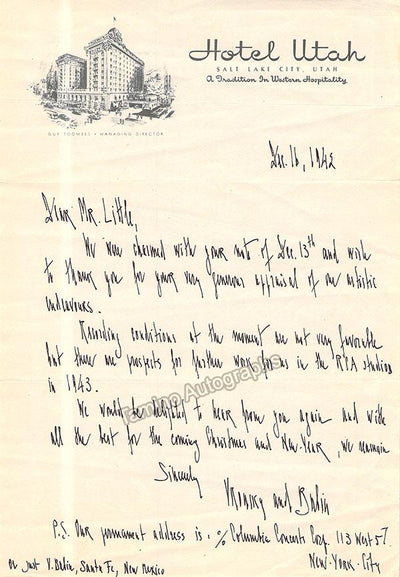 Hotel Utah
SALT LAKE CITY, UTAH
A Tradition In Western Hospitality
GUY TOOMBES • MANAGING DIRECTOR
Dec. 16, 1942
Dear Mr. Little,
We were charmed with your note of Dec. 13th and wish
to thank you for your very generous appraisal of our artistic
endeavours.
Recording conditions at the moment are not very favorable
but there are prospects for further work for us in the RCA studios
in 1943.
Tamino Autographs
We would be delighted to hear from you again and with
all the best for the coming Christmas and New-Year, we remain
Sincerely
Vronsky and Babin
P.S. Our permanent address is: % Columbia Concerts Corp. 113 West 57.
New-York-City
or just V. Babin, Santa Fe, New Mexico